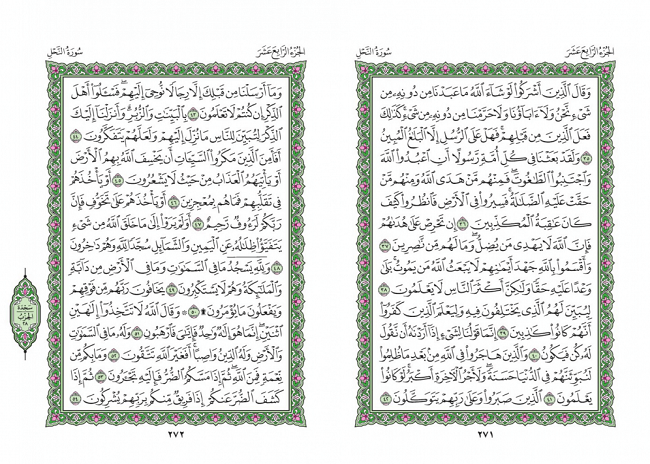 الجُزْءُ الرَّابِعَ عَشَرَ
سُورَةُ النَّحْلِ
وَقَالَ ٱلَّذِينَ أَشۡرَكُواْ لَوۡ شَآءَ ٱللَّهُ مَا عَبَدۡنَا مِن دُونِهِۦ مِن
شَيۡءٖ نَّحۡنُ وَلَآ ءَابَآؤُنَا وَلَا حَرَّمۡنَا مِن دُونِهِۦ مِن شَيۡءٖۚ كَذَٰلِكَ
فَعَلَ ٱلَّذِينَ مِن قَبۡلِهِمۡۚ فَهَلۡ عَلَى ٱلرُّسُلِ إِلَّا ٱلۡبَلَٰغُ ٱلۡمُبِينُ
٣٥ وَلَقَدۡ بَعَثۡنَا فِي كُلِّ أُمَّةٖ رَّسُولًا أَنِ ٱعۡبُدُواْ ٱللَّهَ
وَٱجۡتَنِبُواْ ٱلطَّٰغُوتَۖ فَمِنۡهُم مَّنۡ هَدَى ٱللَّهُ وَمِنۡهُم مَّنۡ
حَقَّتۡ عَلَيۡهِ ٱلضَّلَٰلَةُۚ فَسِيرُواْ فِي ٱلۡأَرۡضِ فَٱنظُرُواْ كَيۡفَ
كَانَ عَٰقِبَةُ ٱلۡمُكَذِّبِينَ ٣٦ إِن تَحۡرِصۡ عَلَىٰ هُدَىٰهُمۡ
فَإِنَّ ٱللَّهَ لَا يَهۡدِي مَن يُضِلُّۖ وَمَا لَهُم مِّن نَّٰصِرِينَ ٣٧
وَأَقۡسَمُواْ بِٱللَّهِ جَهۡدَ أَيۡمَٰنِهِمۡ لَا يَبۡعَثُ ٱللَّهُ مَن يَمُوتُۚ بَلَىٰ
وَعۡدًا عَلَيۡهِ حَقّٗا وَلَٰكِنَّ أَكۡثَرَ ٱلنَّاسِ لَا يَعۡلَمُونَ ٣٨
لِيُبَيِّنَ لَهُمُ ٱلَّذِي يَخۡتَلِفُونَ فِيهِ وَلِيَعۡلَمَ ٱلَّذِينَ كَفَرُوٓاْ
أَنَّهُمۡ كَانُواْ كَٰذِبِينَ ٣٩ إِنَّمَا قَوۡلُنَا لِشَيۡءٍ إِذَآ أَرَدۡنَٰهُ أَن نَّقُولَ
لَهُۥ كُن فَيَكُونُ ٤٠ وَٱلَّذِينَ هَاجَرُواْ فِي ٱللَّهِ مِنۢ بَعۡدِ مَا ظُلِمُواْ
لَنُبَوِّئَنَّهُمۡ فِي ٱلدُّنۡيَا حَسَنَةٗۖ وَلَأَجۡرُ ٱلۡأٓخِرَةِ أَكۡبَرُۚ لَوۡ كَانُواْ
يَعۡلَمُونَ ٤١ ٱلَّذِينَ صَبَرُواْ وَعَلَىٰ رَبِّهِمۡ يَتَوَكَّلُونَ ٤٢
٢٧١
الجُزْءُ الرَّابِعَ عَشَرَ
سُورَةُ النَّحْلِ
وَمَآ أَرۡسَلۡنَا مِن قَبۡلِكَ إِلَّا رِجَالٗا نُّوحِيٓ إِلَيۡهِمۡۖ فَسۡـَٔلُوٓاْ أَهۡلَ
ٱلذِّكۡرِ إِن كُنتُمۡ لَا تَعۡلَمُونَ ٤٣ بِٱلۡبَيِّنَٰتِ وَٱلزُّبُرِۗ وَأَنزَلۡنَآ إِلَيۡكَ
ٱلذِّكۡرَ لِتُبَيِّنَ لِلنَّاسِ مَا نُزِّلَ إِلَيۡهِمۡ وَلَعَلَّهُمۡ يَتَفَكَّرُونَ ٤٤
أَفَأَمِنَ ٱلَّذِينَ مَكَرُواْ ٱلسَّيِّـَٔاتِ أَن يَخۡسِفَ ٱللَّهُ بِهِمُ ٱلۡأَرۡضَ
أَوۡ يَأۡتِيَهُمُ ٱلۡعَذَابُ مِنۡ حَيۡثُ لَا يَشۡعُرُونَ ٤٥ أَوۡ يَأۡخُذَهُمۡ
فِي تَقَلُّبِهِمۡ فَمَا هُم بِمُعۡجِزِينَ ٤٦ أَوۡ يَأۡخُذَهُمۡ عَلَىٰ تَخَوُّفٖ فَإِنَّ
رَبَّكُمۡ لَرَءُوفٞ رَّحِيمٌ ٤٧ أَوَلَمۡ يَرَوۡاْ إِلَىٰ مَا خَلَقَ ٱللَّهُ مِن شَيۡءٖ
يَتَفَيَّؤُاْ ظِلَٰلُهُۥ عَنِ ٱلۡيَمِينِ وَٱلشَّمَآئِلِ سُجَّدٗا لِّلَّهِ وَهُمۡ دَٰخِرُونَ
٤٨ وَلِلَّهِۤ يَسۡجُدُۤ مَا فِي ٱلسَّمَٰوَٰتِ وَمَا فِي ٱلۡأَرۡضِ مِن دَآبَّةٖ
وَٱلۡمَلَٰٓئِكَةُ وَهُمۡ لَا يَسۡتَكۡبِرُونَ ٤٩ يَخَافُونَ رَبَّهُم مِّن فَوۡقِهِمۡ
وَيَفۡعَلُونَ مَا يُؤۡمَرُونَ۩ ٥٠ ۞ وَقَالَ ٱللَّهُ لَا تَتَّخِذُوٓاْ إِلَٰهَيۡنِ
ٱثۡنَيۡنِۖ إِنَّمَا هُوَ إِلَٰهٞ وَٰحِدٞ فَإِيَّٰيَ فَٱرۡهَبُونِ ٥١ وَلَهُۥ مَا فِي ٱلسَّمَٰوَٰتِ
وَٱلۡأَرۡضِ وَلَهُ ٱلدِّينُ وَاصِبًاۚ أَفَغَيۡرَ ٱللَّهِ تَتَّقُونَ ٥٢ وَمَا بِكُم مِّن
نِّعۡمَةٖ فَمِنَ ٱللَّهِۖ ثُمَّ إِذَا مَسَّكُمُ ٱلضُّرُّ فَإِلَيۡهِ تَجۡـَٔرُونَ ٥٣ ثُمَّ إِذَا
كَشَفَ ٱلضُّرَّ عَنكُمۡ إِذَا فَرِيقٞ مِّنكُم بِرَبِّهِمۡ يُشۡرِكُونَ ٥٤
سَجْدَة
الحِزْب
٢٨
٢٧٢